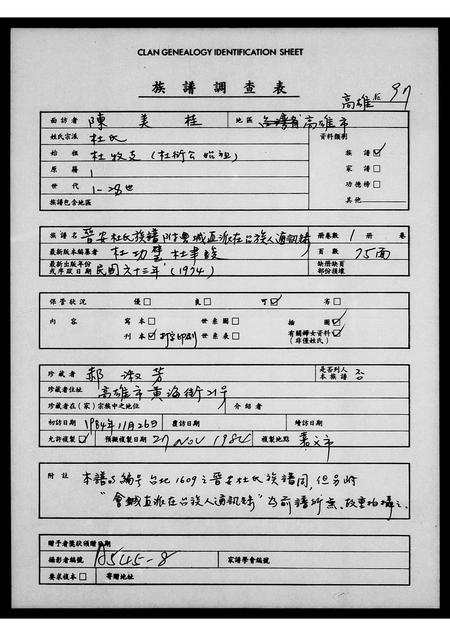 CLAN GENEALOGY IDENTIFICATION SHEET
族譜調查表
高雄 97
面訪者 陳美桂 地區 台灣省高雄市
姓氏宗派 杜氏 資料類別
始祖 杜牧之(杜衍公始祖) 族譜☑
原籍 家譜□
世代 1-28世 功德榜□
族譜包含地區 其他
族譜名 晉安杜氏族譜附會城直派在台族人通訊錄 冊卷數 1 冊 卷
最新版本編纂者 杜功 杜聿 頁數 75面
最新出版年份或序跋日期 民國六十三年(1974) 缺冊缺頁部份損壞
保管狀況 優□ 良□ 可☑ 劣□
內容 寫本□ 世系圖□ 插圖☑
刊本☑打字印刷 世系表□ 有關婦女資料☑(非僅姓氏)
珍藏者 郝淑芳 是否列入本族譜 否
珍藏者住址 高雄市黃海街21号
珍藏者在(家)宗族中之地位 介紹者
初訪日期 1984年11月26日 覆訪日期 續訪日期
允許複製☑ 預擬複製日期 27 NOV 1984 複製地點 嘉義市
附註 本譜与編号台北1609之晉安杜氏族譜同,但另附
"會城直派在台族人通訊錄"為前譜所無,故重拍攝之.
贈予者獎狀頒贈日期
攝影者編號 A545-8 家譜學會編號
要求複本□ 寄贈地址